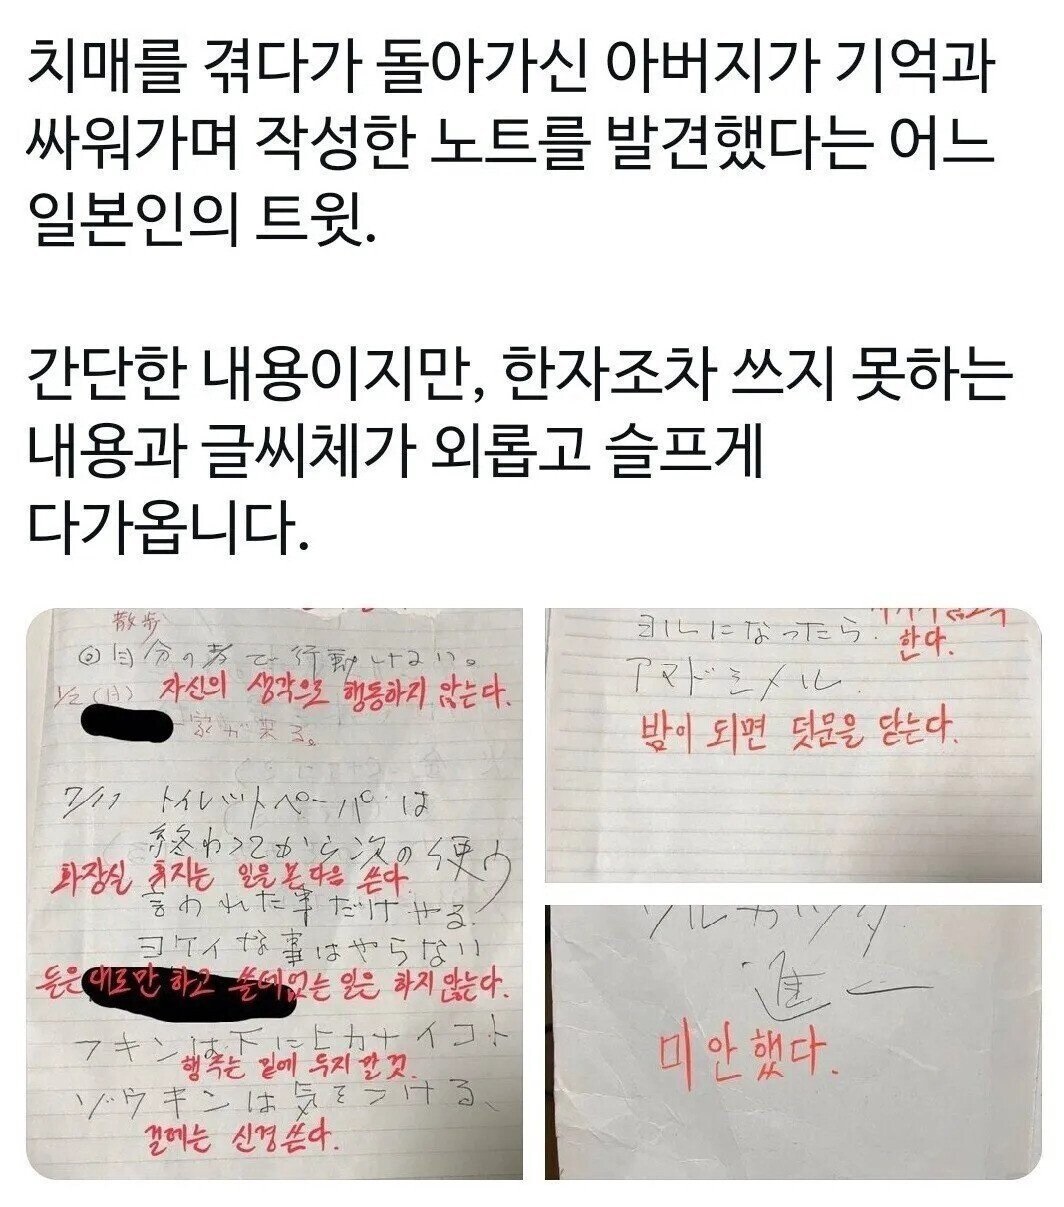 치매를 겪다가 돌아가신 아버지가 기억과
싸워가며 작성한 노트를 발견했다는 어느
일본인의 트윗.
간단한 내용이지만, 한자조차 쓰지 못하는
내용과 글씨체가 외롭고 슬프게
다가옵니다.
散歩
◎自分の考で行動しない。
1/2(月) 자신의 생각으로 행동하지 않는다.
家が
る。
7/11 トイレットペーパは
終わってから次の使ウ
화장실 휴지는 일을 본 다음 쓴다.
言われた事だけやる
ヨケイな事はやらない
듣은 대로만 하고 쓸데없는 일은 하지 않는다.
フキンは下にヒカナイコト
행주는 밑에 두지 말 것.
ゾウキンは気をつける、
걸레는 신경쓴다.
ヨルになったら.
한다.
アマドシメル.
밤이 되면 덧문을 닫는다.
進一
미안했다.